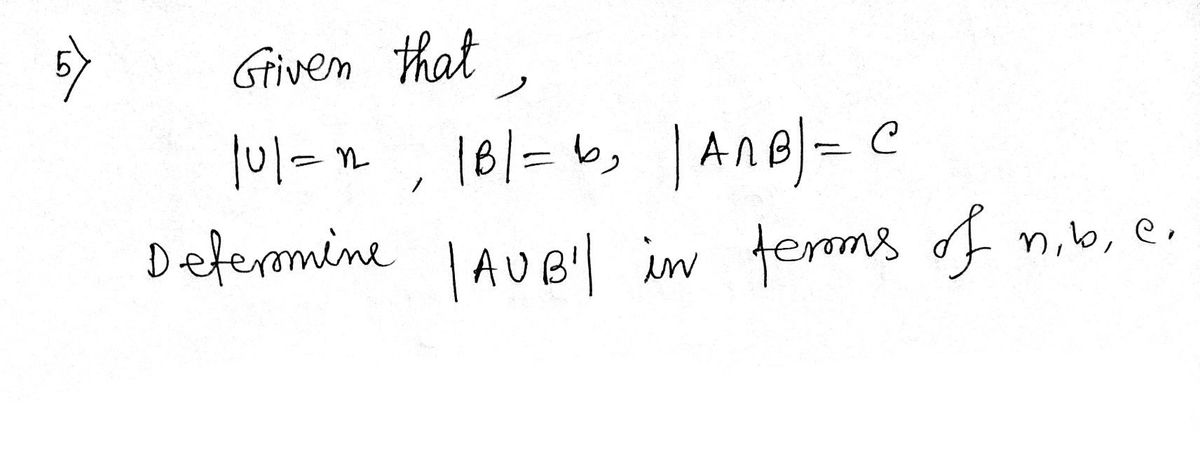 5) Given that,
|U| = n, |B| = b, |A∩B| = c
Determine |A∪B'| in terms of n, b, c.